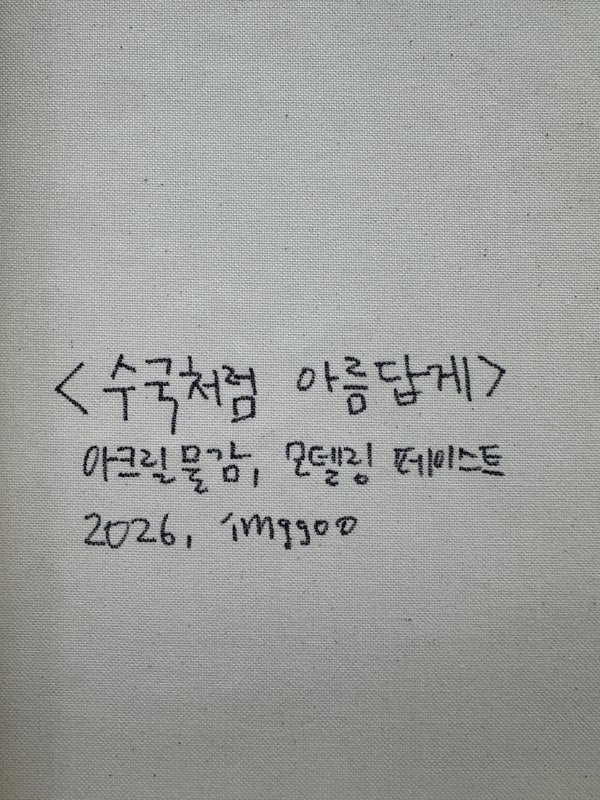 <수국처럼 아름답게>
아크릴물감, 모델링 페이스트
2026, imggoo